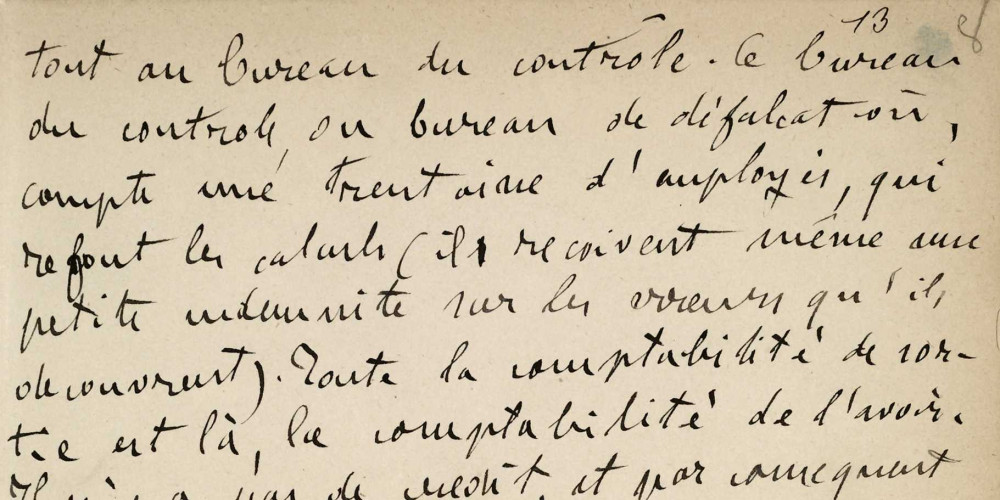 13 8
tout au bureau du contrôle. Ce bureau
du contrôle, ou bureau de défalcation,
compte une trentaine d'employés, qui
refont les calculs (ils reçoivent même une
petite indemnité sur les erreurs qu'ils
découvrent). Toute la comptabilité de sor-
tie est là, la comptabilité de l'avoir.
Il n'y a pas de crédit, et par conséquent